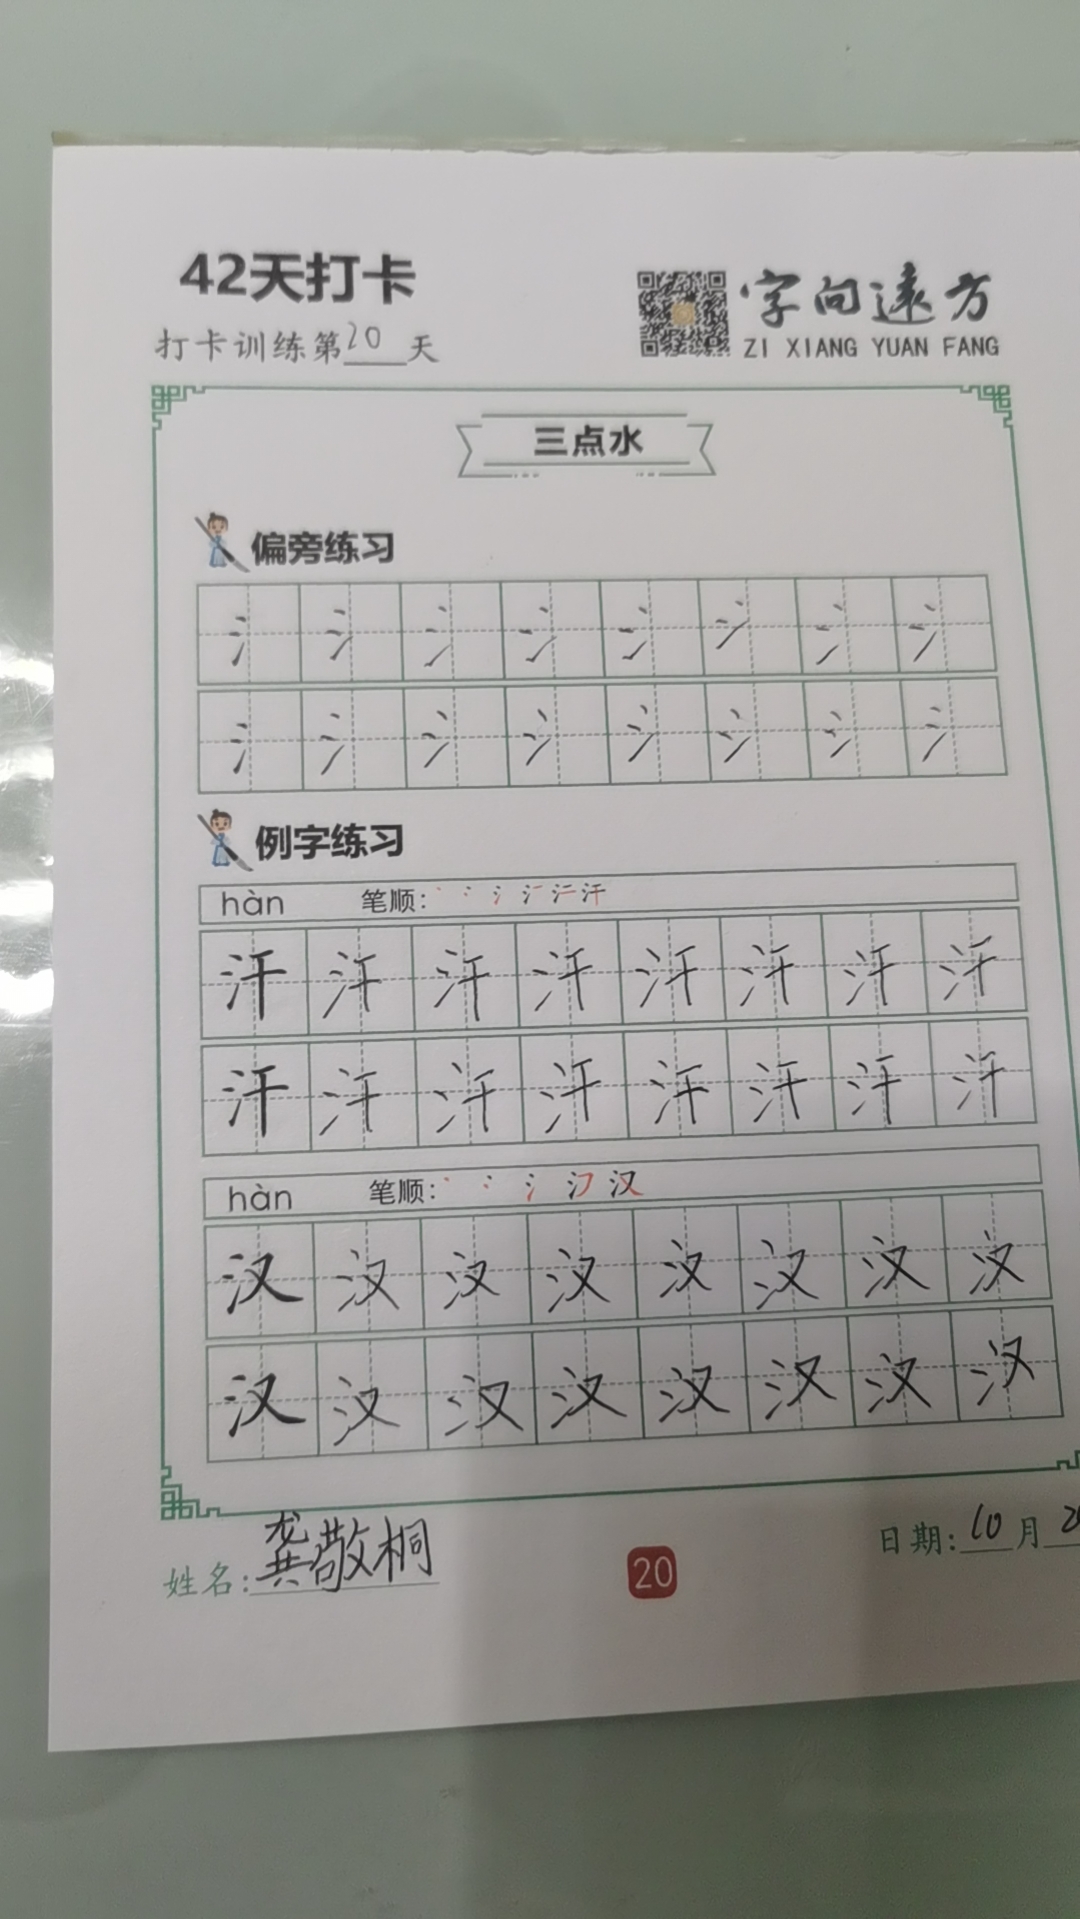 42天打卡
打卡训练第20天
字向远方
ZI XIANG YUAN FANG
三点水
偏旁练习
氵氵氵氵氵氵氵氵
氵氵氵氵氵氵氵氵
例字练习
hàn 笔顺:
汗汗汗汗汗汗汗汗
汗汗汗汗汗汗汗汗
hàn 笔顺: 汉
汉汉汉汉汉汉汉汉
汉汉汉汉汉汉汉汉
姓名:龚敬桐
20
日期:10月